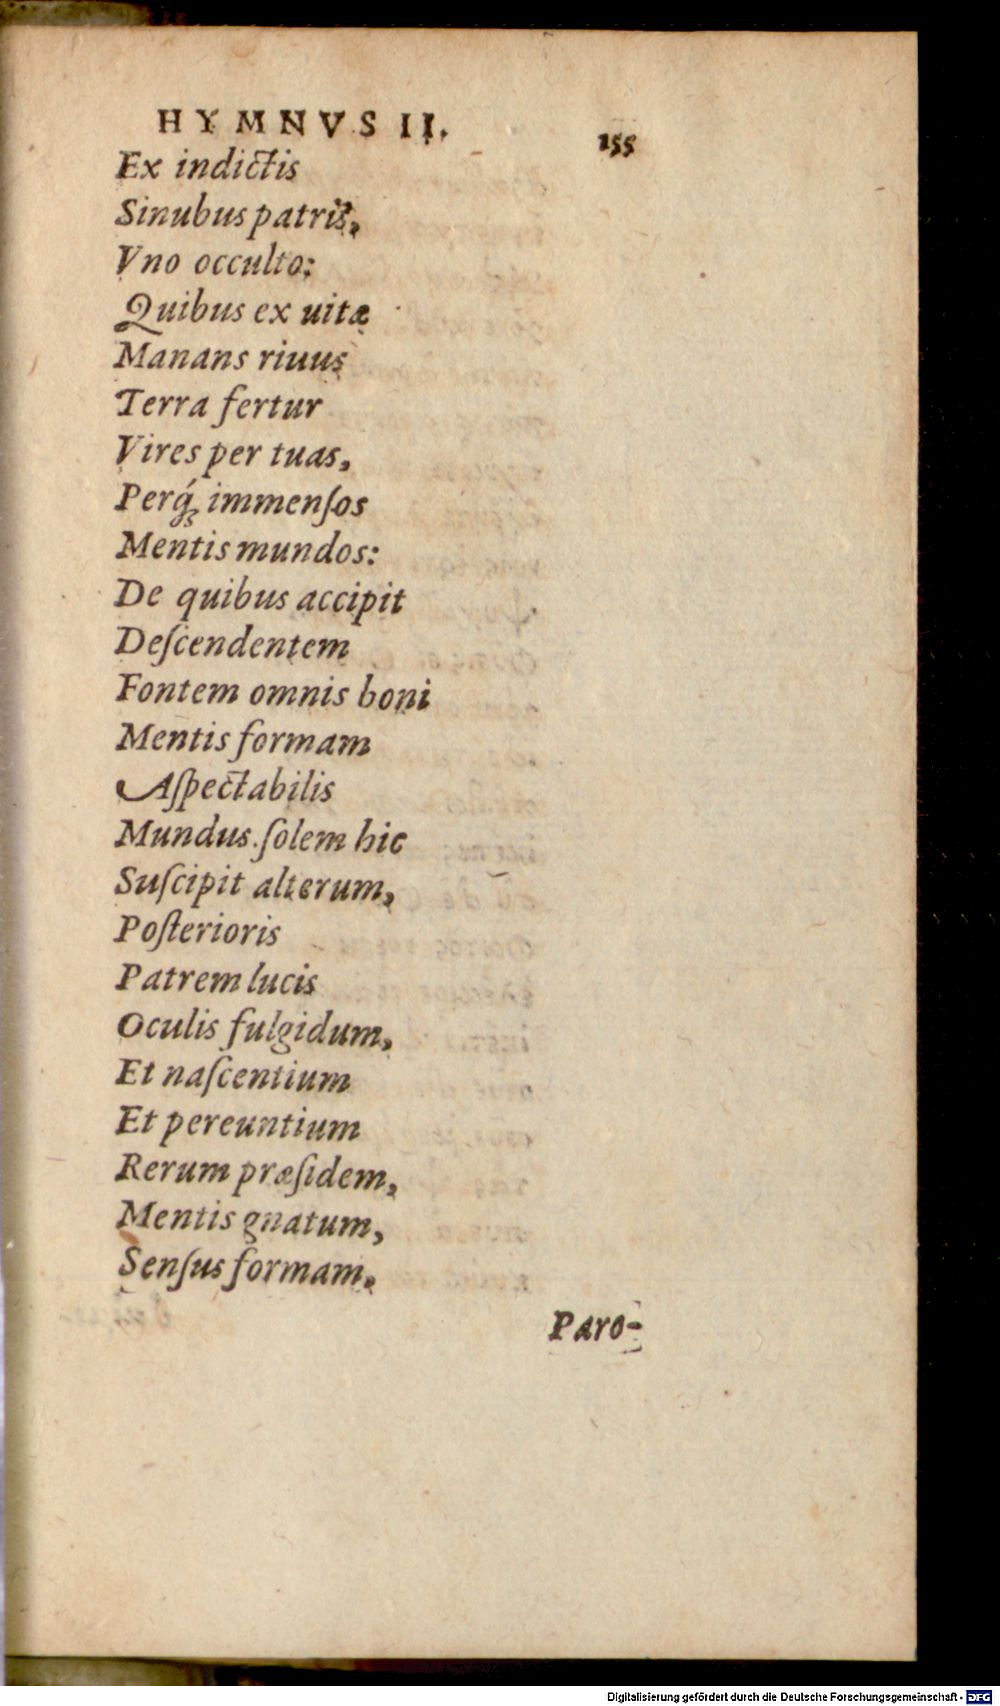 HYMNVS II. 155
Ex indictis
Sinubus patris,
Vno occulto:
Quibus ex uitæ
Manans riuus
Terra fertur
Vires per tuas,
Perq́; immenſos
Mentis mundos:
De quibus accipit
Deſcendentem
Fontem omnis boni
Mentis formam
Aſpectabilis
Mundus. ſolem hic
Suſcipit alterum,
Poſterioris
Patrem lucis
Oculis fulgidum,
Et naſcentium
Et pereuntium
Rerum præſidem,
Mentis gnatum,
Senſus formam.
Paro-
Digitalisierung gefördert durch die Deutsche Forschungsgemeinschaft - DFG